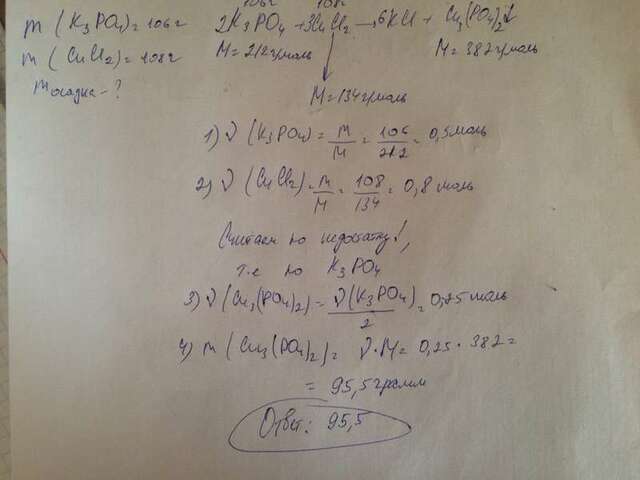 106г 108г
m (K₃PO₄) = 106г 2K₃PO₄ + 3CuCl₂ → 6KCl + Cu₃(PO₄)₂↓
m (CuCl₂) = 108г M = 212г/моль M = 382г/моль
m осадка - ?
M = 134г/моль
1) ν (K₃PO₄) = m/M = 106/212 = 0,5моль
2) ν (CuCl₂) = m/M = 108/134 = 0,8 моль
Считаем по недостатку!,
т.е по K₃PO₄
3) ν (Cu₃(PO₄)₂) = ν(K₃PO₄)/2 = 0,25моль
4) m (Cu₃(PO₄)₂) = ν·M = 0,25·382 =
= 95,5грамм
Ответ: 95,5